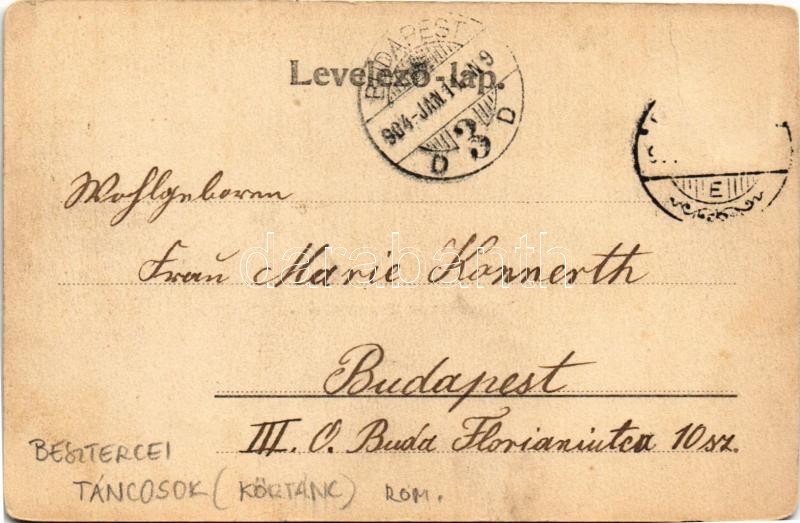 Levelező-lap.
BUDAPEST
904-JAN.1 N 9
D 3 D
E
Wohlgeboren
Frau Marie Konnerth
darabanth
Budapest
III. O. Buda Florianiutca 10 sz.
BESZTERCEI
TÁNCOSOK (KÖRTÁNC) ROM.